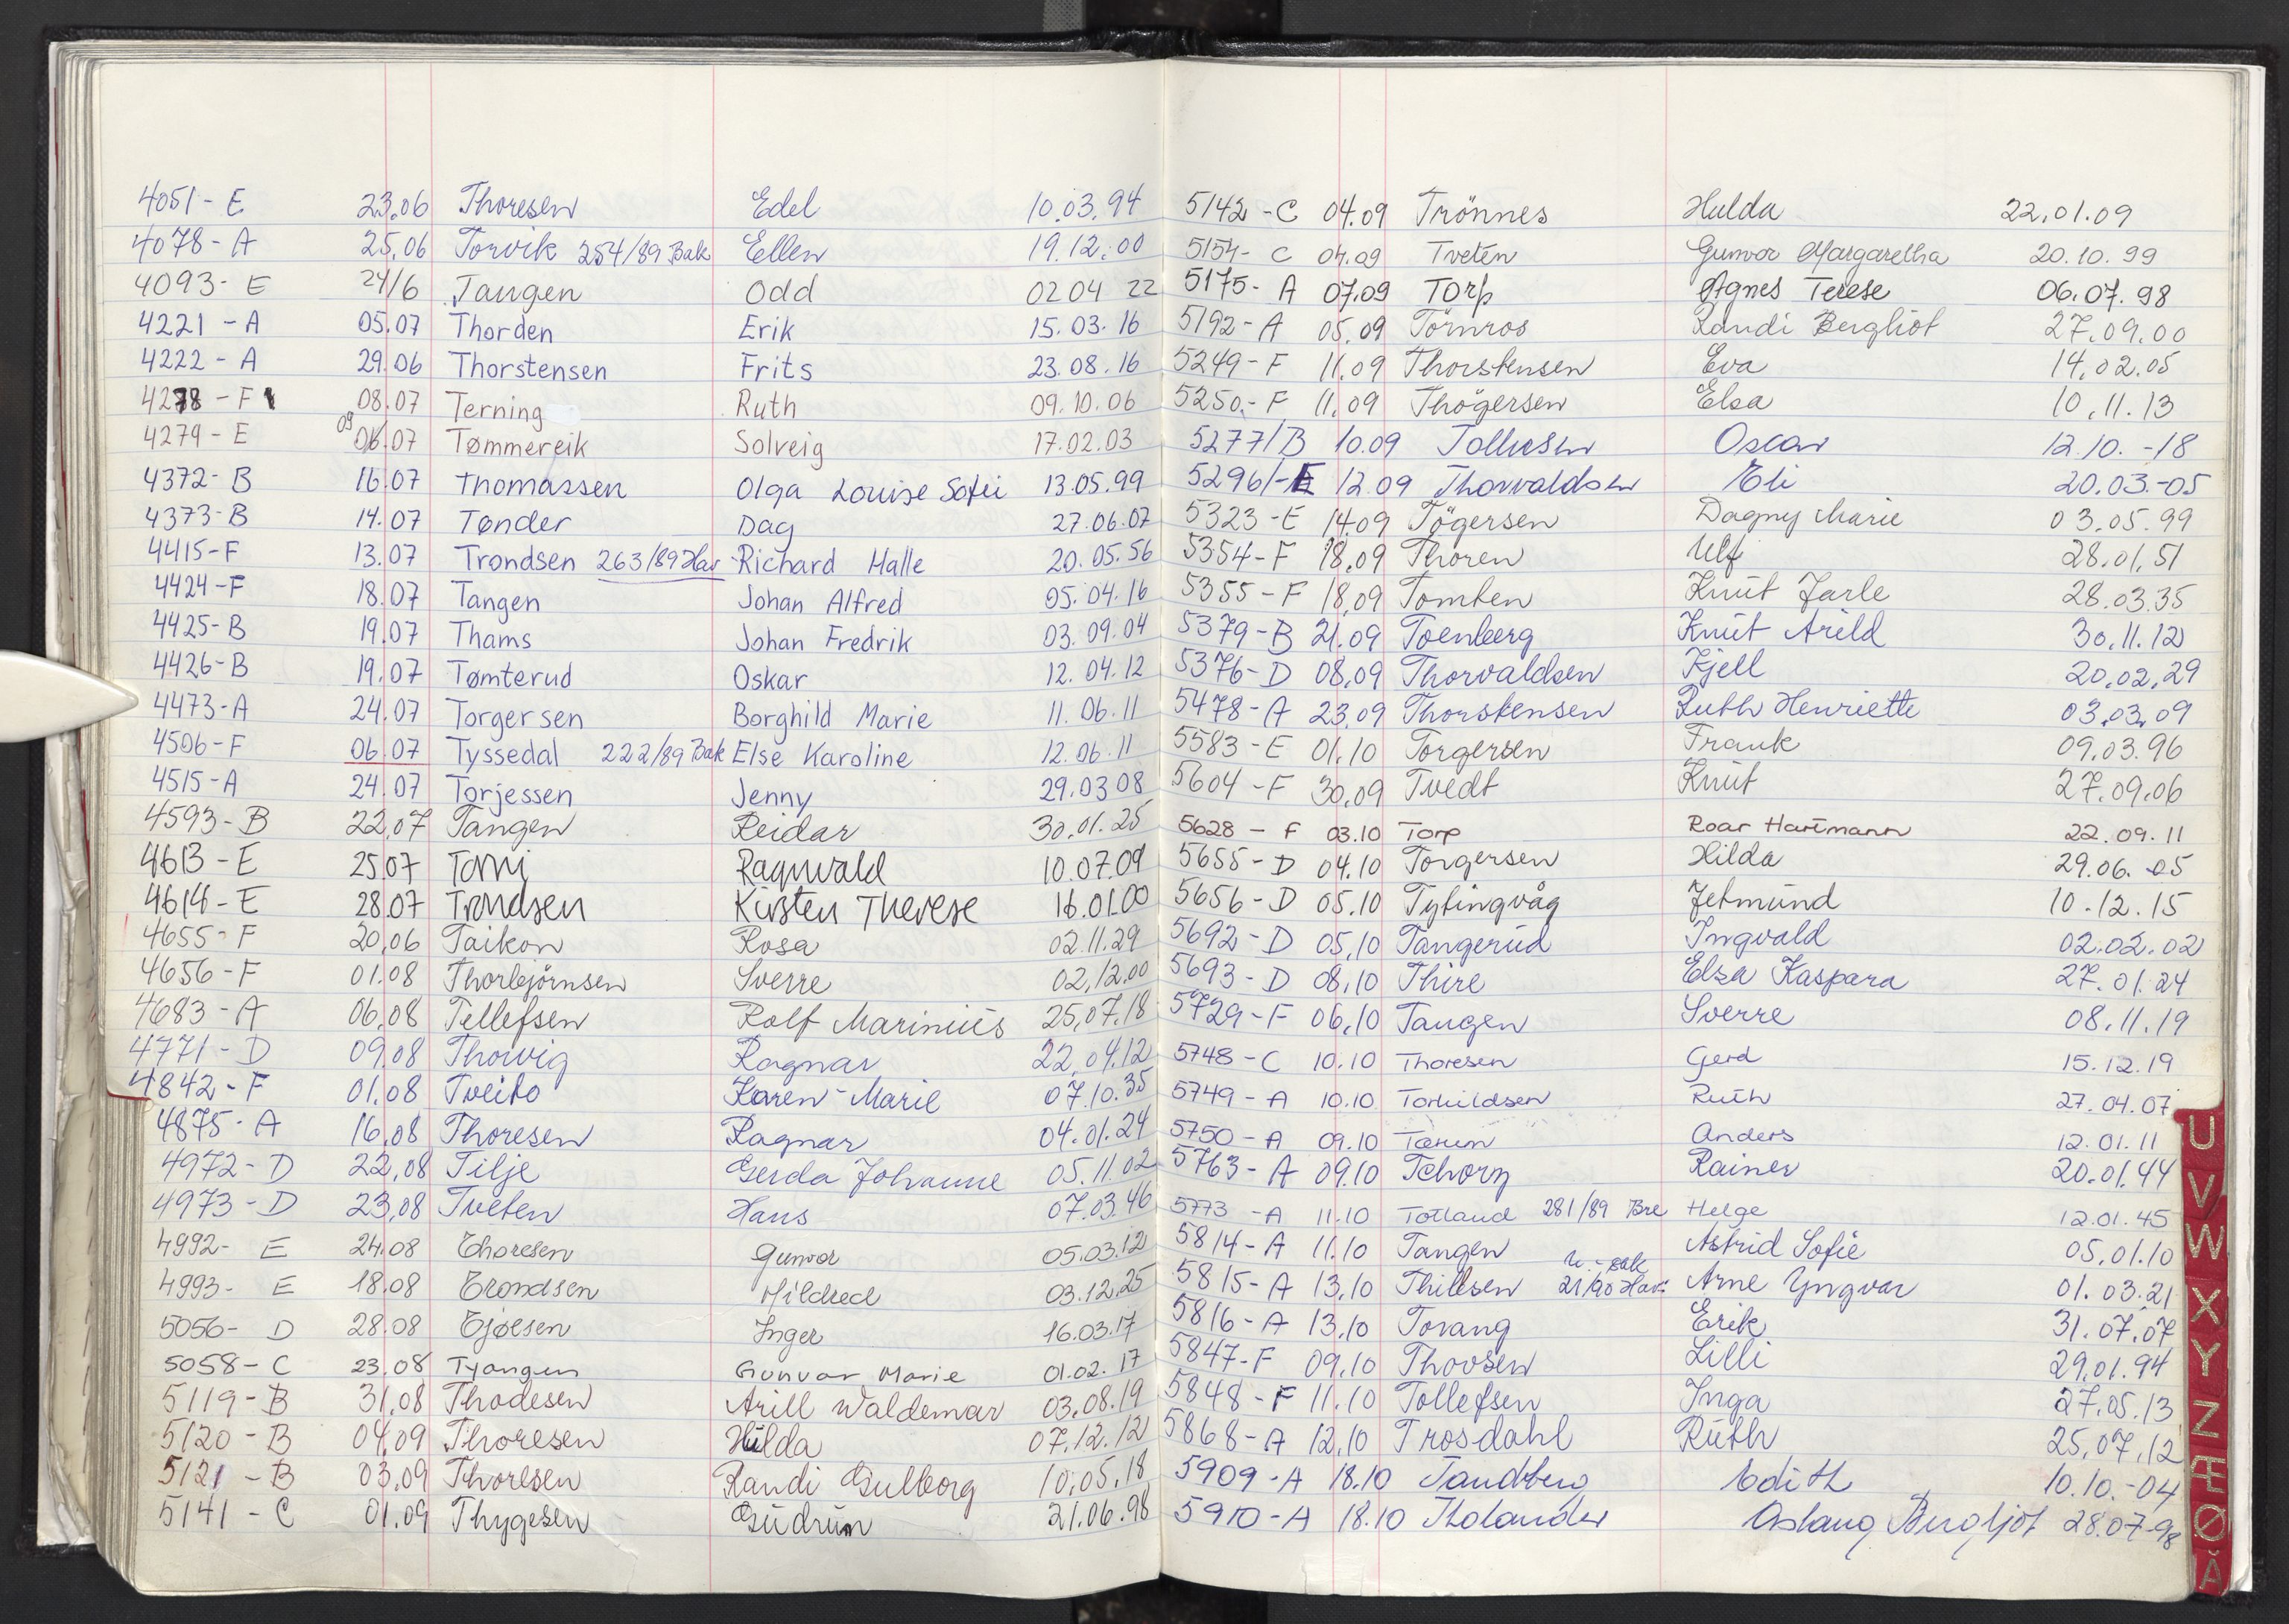 4051 - E 23.06 Thoresen Edel 10.03.94
4078 - A 25.06 Torvik 254/89 Bak Ellen 19.12.00
4093 - E 24/6 Tangen Odd 02 04 22
4221 - A 05.07 Thorden Erik 15.03.16
4222 - A 29.06 Thorstensen Frits 23.08.16
4278 - F 08.07 Terning Ruth 09.10.06
4279 - E 09 06.07 Tømmereik Solveig 17.02.03
4372 - B 16.07 Thomassen Olga Louise Sofie 13.05.99
4373 - B 14.07 Tønder Dag 27.06.07
4415 - F 13.07 Trondsen 263/89 Hav Richard Halle 20.05.56
4424 - F 18.07 Tangen Johan Alfred 05.04.16
4425 - B 19.07 Thams Johan Fredrik 03.09.04
4426 - B 19.07 Tømterud Oskar 12.04.12
4473 - A 24.07 Torgersen Borghild Marie 11.06.11
4506 - F 06.07 Tyssedal 222/89 Bak Else Karoline 12.06.11
4515 - A 24.07 Torjessen Jenny 29.03 08
4593 - B 22.07 Tangen Reidar 30.01.25
4613 - E 25.07 Ragnvald 10.07.09
4614 - E 28.07 Trondsen Kirsten Therese 16.01.00
4655 - F 20.06 Taikon Rosa 02.11.29
4656 - F 01.08 Thorbjørnsen Sverre 02.12.00
4683 - A 06.08 Tellefsen Rolf Marinius 25.07.18
4771 - D 09.08 Thorvig Ragnar 22.04.12
4842 - F 01.08 Tveito Karen-Marie 07.10.35
4875 - A 16.08 Thoresen Ragnar 04.01.24
4972 - D 22.08 Tilje Gerda Johanne 05.11.02
4973 - D 23.08 Tveten Hans 07.03.46
4992 - E 24.08 Thoresen Gunvor 05.03.12
4993 - E 18.08 Trondsen Mildred 03.12.25
5056 - D 28.08 Tjøesen Inger 16.03.17
5058 - C 23.08 Tjongen Gunvor Marie 01.02.17
5119 - B 31.08 Thodesen Arill Waldemar 03.08.19
5120 - B 04.09 Thoresen Hilda 07.12.12
5121 - B 03.09 Thoresen Randi Gulborg 10.05.18
5141 - C 01.09 Thygesen Gudrun 21.06.98
5142 - C 04.09 Trönnes Hulda 22.01.09
5154 - C 04.09 Tveten Gunvor Margaretha 20.10.99
5175 - A 07.09 Torp Agnes Terese 06.07.98
5192 - A 05.09 Törnros Randi Bergliot 27.09.00
5249 - F 11.09 Thorstensen Eva 14.02.05
5250 - F 11.09 Thögersen Elsa 10.11.13
5277/B 10.09 Tollefsen Oscar 12.10.-18
5296/-E 12.09 Thorvaldsen Eli 20.03.-05
5323 - E 14.09 Tögersen Dagny Marie 03.05.99
5354 - F 18.09 Thoren Ulf 28.01.51
5355 - F 18.09 Tomten Knut Jarle 28.03.35
5379 - B 21.09 Toenberg Knut Arild 30.11.12
5376 - D 08.09 Thorvaldsen Kjell 20.02.29
5478 - A 23.09 Thorstensen Ruth Henriette 03.03.09
5583 - E 01.10 Torgersen Frank 09.03.96
5604 - F 30.09 Tvedt Knut 27.09.06
5628 - F 03.10 Torp Roar Hartmann 22.09.11
5655 - D 04.10 Torgersen Hilda 29.06.05
5656 - D 05.10 Tytingvåg Jetmund 10.12.15
5692 - D 05.10 Tangerud Ingvald 02.02.02
5693 - D 08.10 Thire Elsa Kaspara 27.01.24
5729 - F 06.10 Tangen Sverre 08.11.19
5748 - C 10.10 Thoresen Gerd 15.12.19
5749 - A 10.10 Torhildsen Ruth 27.04.07
5750 - A 09.10 Anders 12.01.11
5763 - A 09.10 Tchorz Rainer 20.01.44
5773 - A 11.10 Totland 281/89 Bre Helge 12.01.45
5814 - A 11.10 Tangen Astrid Sofie 05.01.10
5815 - A 13.10 Thillsen 21/90 Hav. Arne Yngvar 01.03.21
5816 - A 13.10 Torang Erik 31.07.07
5847 - F 09.10 Thovsen Lilli 29.01.94
5848 - F 11.10 Tollefsen Inga 27.05.13
5868 - A 12.10 Trosdahl Ruth 25.07.12
5909 - A 18.10 Tandberg Edith 10.10.-04
5910 - A 18.10 Tholander Aslaug Bergljot 28.07-98
U
V
W
X
Y
Z
Æ
Ø
Å